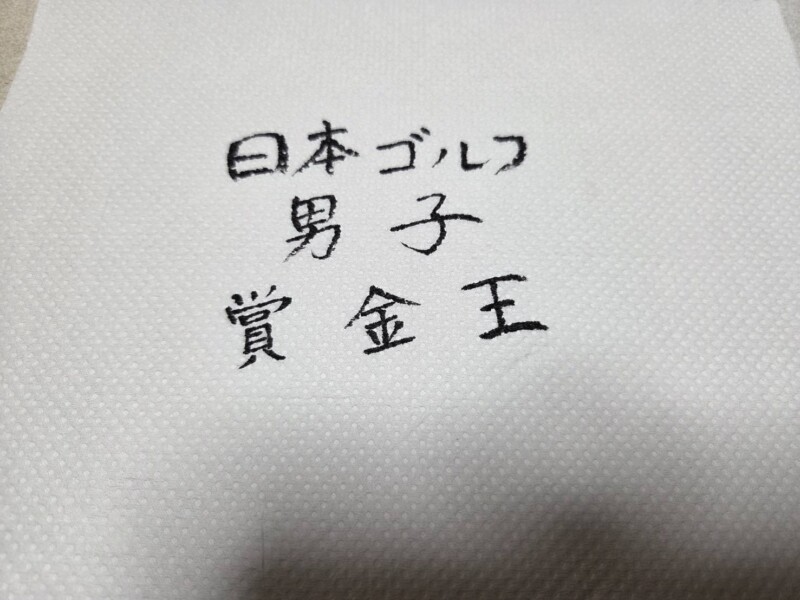 日本ゴルフ
男子
賞金王